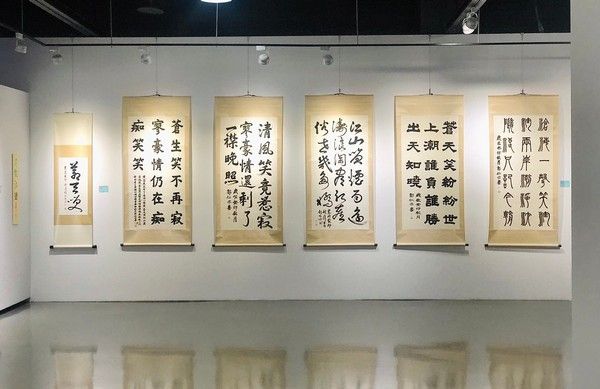 滄海一聲笑滔
滔兩岸潮浮沈
隨浪只記今朝
蒼天笑紛紛世
上潮誰負誰勝
出天知曉
江山笑煙雨遙
濤浪淘盡紅塵
俗世幾多
清風笑竟惹寂
寥豪情還剩了
一襟晚照
蒼生笑不再寂
寥豪情仍在痴
痴笑笑